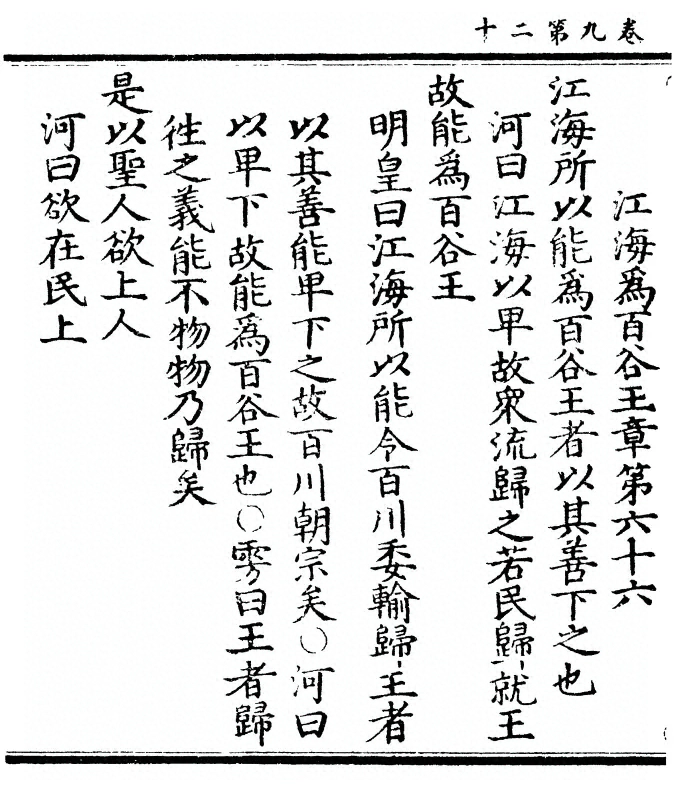 卷九第二十
江海爲百谷王章第六十六
江海所以能爲百谷王者以其善下之也
河曰江海以卑故衆流歸之若民歸就王
故能爲百谷王
明皇曰江海所以能令百川委輸歸王者
以其善能卑下之故百川朝宗矣〇河曰
以卑下故能爲百谷王也〇雱曰王者歸
徃之義能不物物乃歸矣
是以聖人欲上人
河曰欲在民上